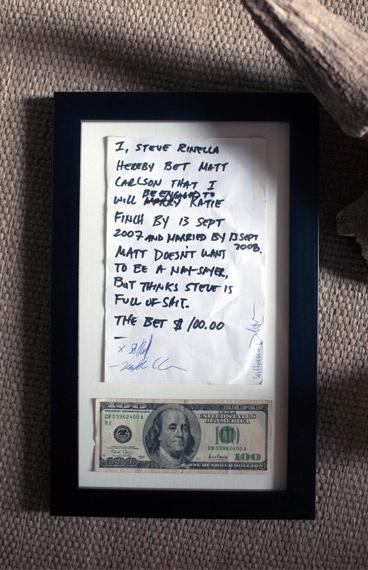 I, STEVE RINELLA
HEREBY BET MATT
CARLSON THAT I
BE ENGAGED TO
WILL MARRY KATIE
FINCH BY 13 SEPT
2007 AND MARRIED BY 13 SEPT
2008.
MATT DOESN'T WANT
TO BE A NAY-SAYER,
BUT THINKS STEVE IS
FULL OF SHIT.
THE BET $100.00
THE UNITED STATES
OF AMERICA
DB 03962400 A
B2
DB 03962400 A
100
ONE HUNDRED DOLLARS
100